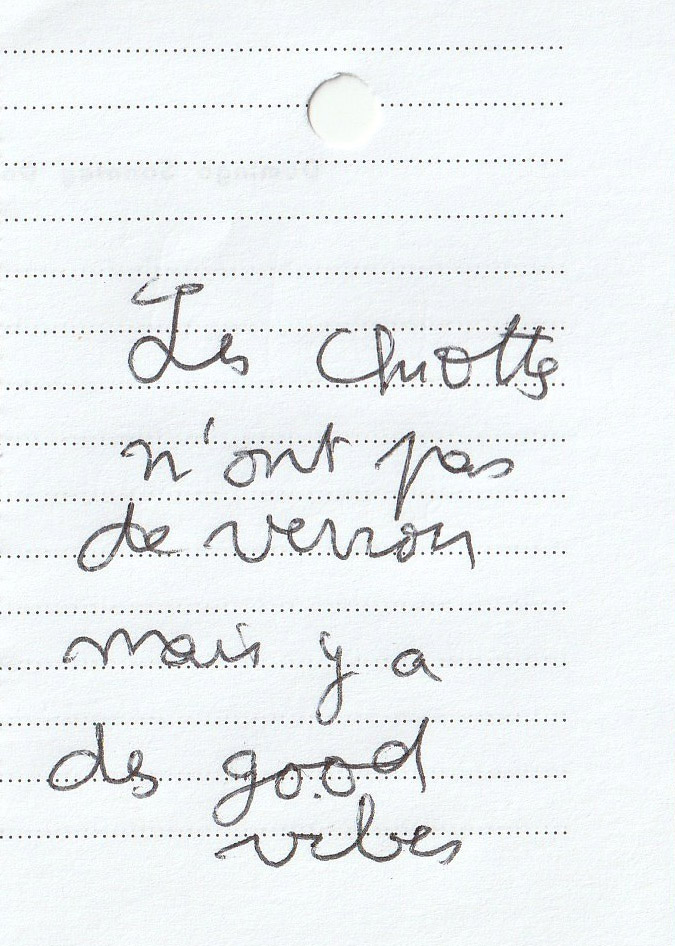 Les Chiotts
n'ont pas
de verrou
mais y a
des good
vibes